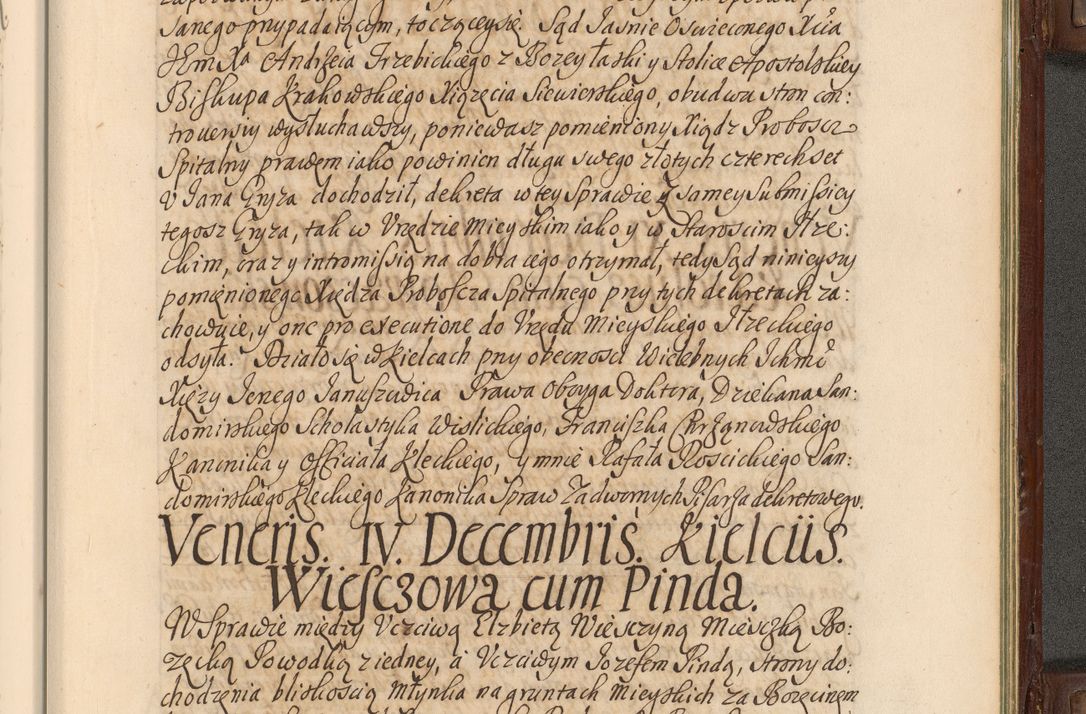 sanego przypadaiącym, toczącey się. Sąd Jasnie Oswieconego Xcia
JEm Xa Andrzeia Trzebickiego z Bozey łaski y Stolice Apostolskiey
Biskupa Krakowskiego Xiązęcia Siewierskiego, obudwu stron con:
trouersiy wysłuchawszy, poniewasz pomieniony Xiądz Proboscz
Spitalny prawem iako powinien długu swego złotych czterechset
v Jana Gryza dochodził, dekreta w tey Sprawie z samey Submissiey
tegosz Gryza, tak w Vrzędzie Mieyskim iako y w Staroscim Iłze:
ckim, oraz y intromissią na dobra iego otrzymał, tedy Sąd ninieyszy
pomienionego Xiędza Proboscza Spitalnego przy tych dekretach za:
chowuie, y one pro executione do Vrzędu Mieyskiego Iłzeckiego
odsyła. Działo się w Kielcach przy obecnosci Wielebnych Ichmć
Xięzy Jerzego Januszowica Prawa Oboyga Doktora, Dziekana San:
domirskiego Scholastyka Wislickiego, Franciszka Chrząnowskiego
Kanonika y Officiała Kieckiego, y mnie Rafała Roscickiego San:
domirskiego Kieckiego Kanonika Spraw Zadwornych Pisarza dekretowego.
Veneris. IV. Decembris. Kielciis.
Wiesczowa cum Pinda.
W Sprawie między Vcrciwą Elzbietą Wiesczyną Miesczką Bo:
zęcką Powodką z iedney, a Vcrciwym Jozefem Pindą, strony do:
chodzenia bliskoscią Młynka na gruntach Mieyskich za Borzęcinem